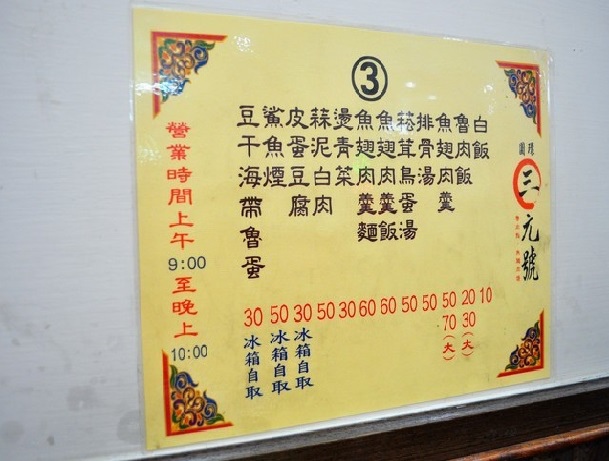 ③
圓環
三元號
白飯 10
魯肉飯 20 30(大)
魚翅肉羹 50 70(大)
排骨湯 50
菘茸鳥蛋湯 50
魚翅肉羹飯 60
魚翅肉羹麵 60
燙青菜 30
蒜泥白肉 50
皮蛋豆腐 30 冰箱自取
鯊魚煙 50 冰箱自取
豆干海帶魯蛋 30 冰箱自取
營業時間上午9:00至晚上10:00